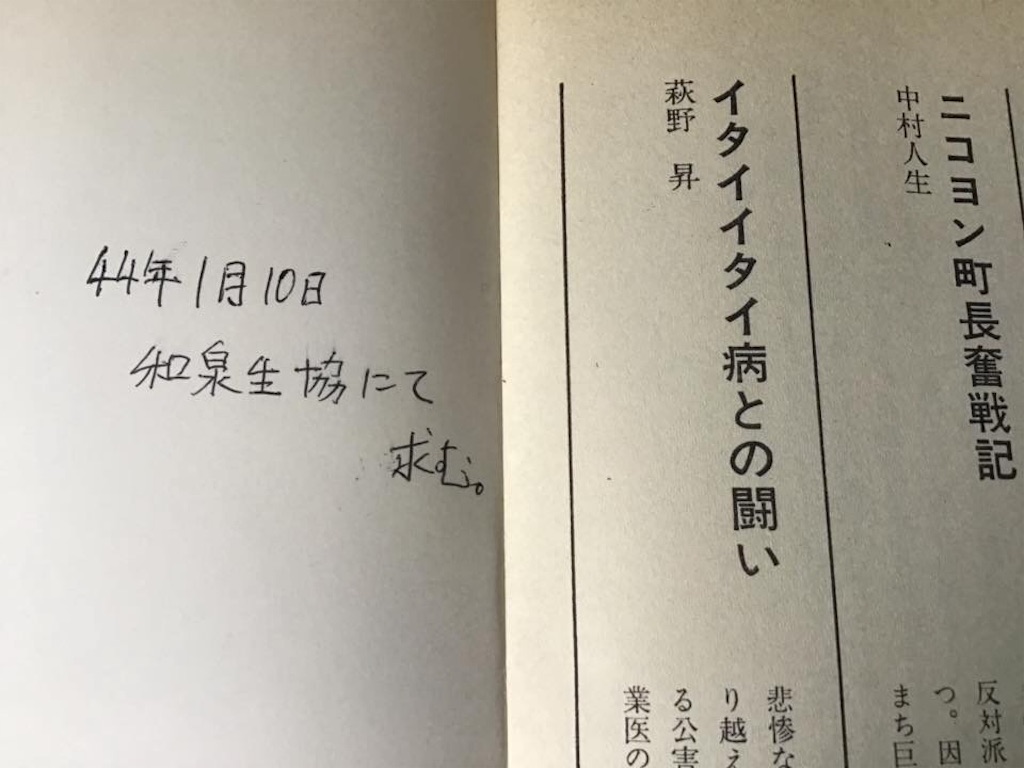 44年1月10日
和泉生協にて
求む。
ニコヨン町長奮戦記
中村人生
反対派
つ。因
まち巨
イタイイタイ病との闘い
萩野 昇
悲惨な
り越え
る公害
業医の